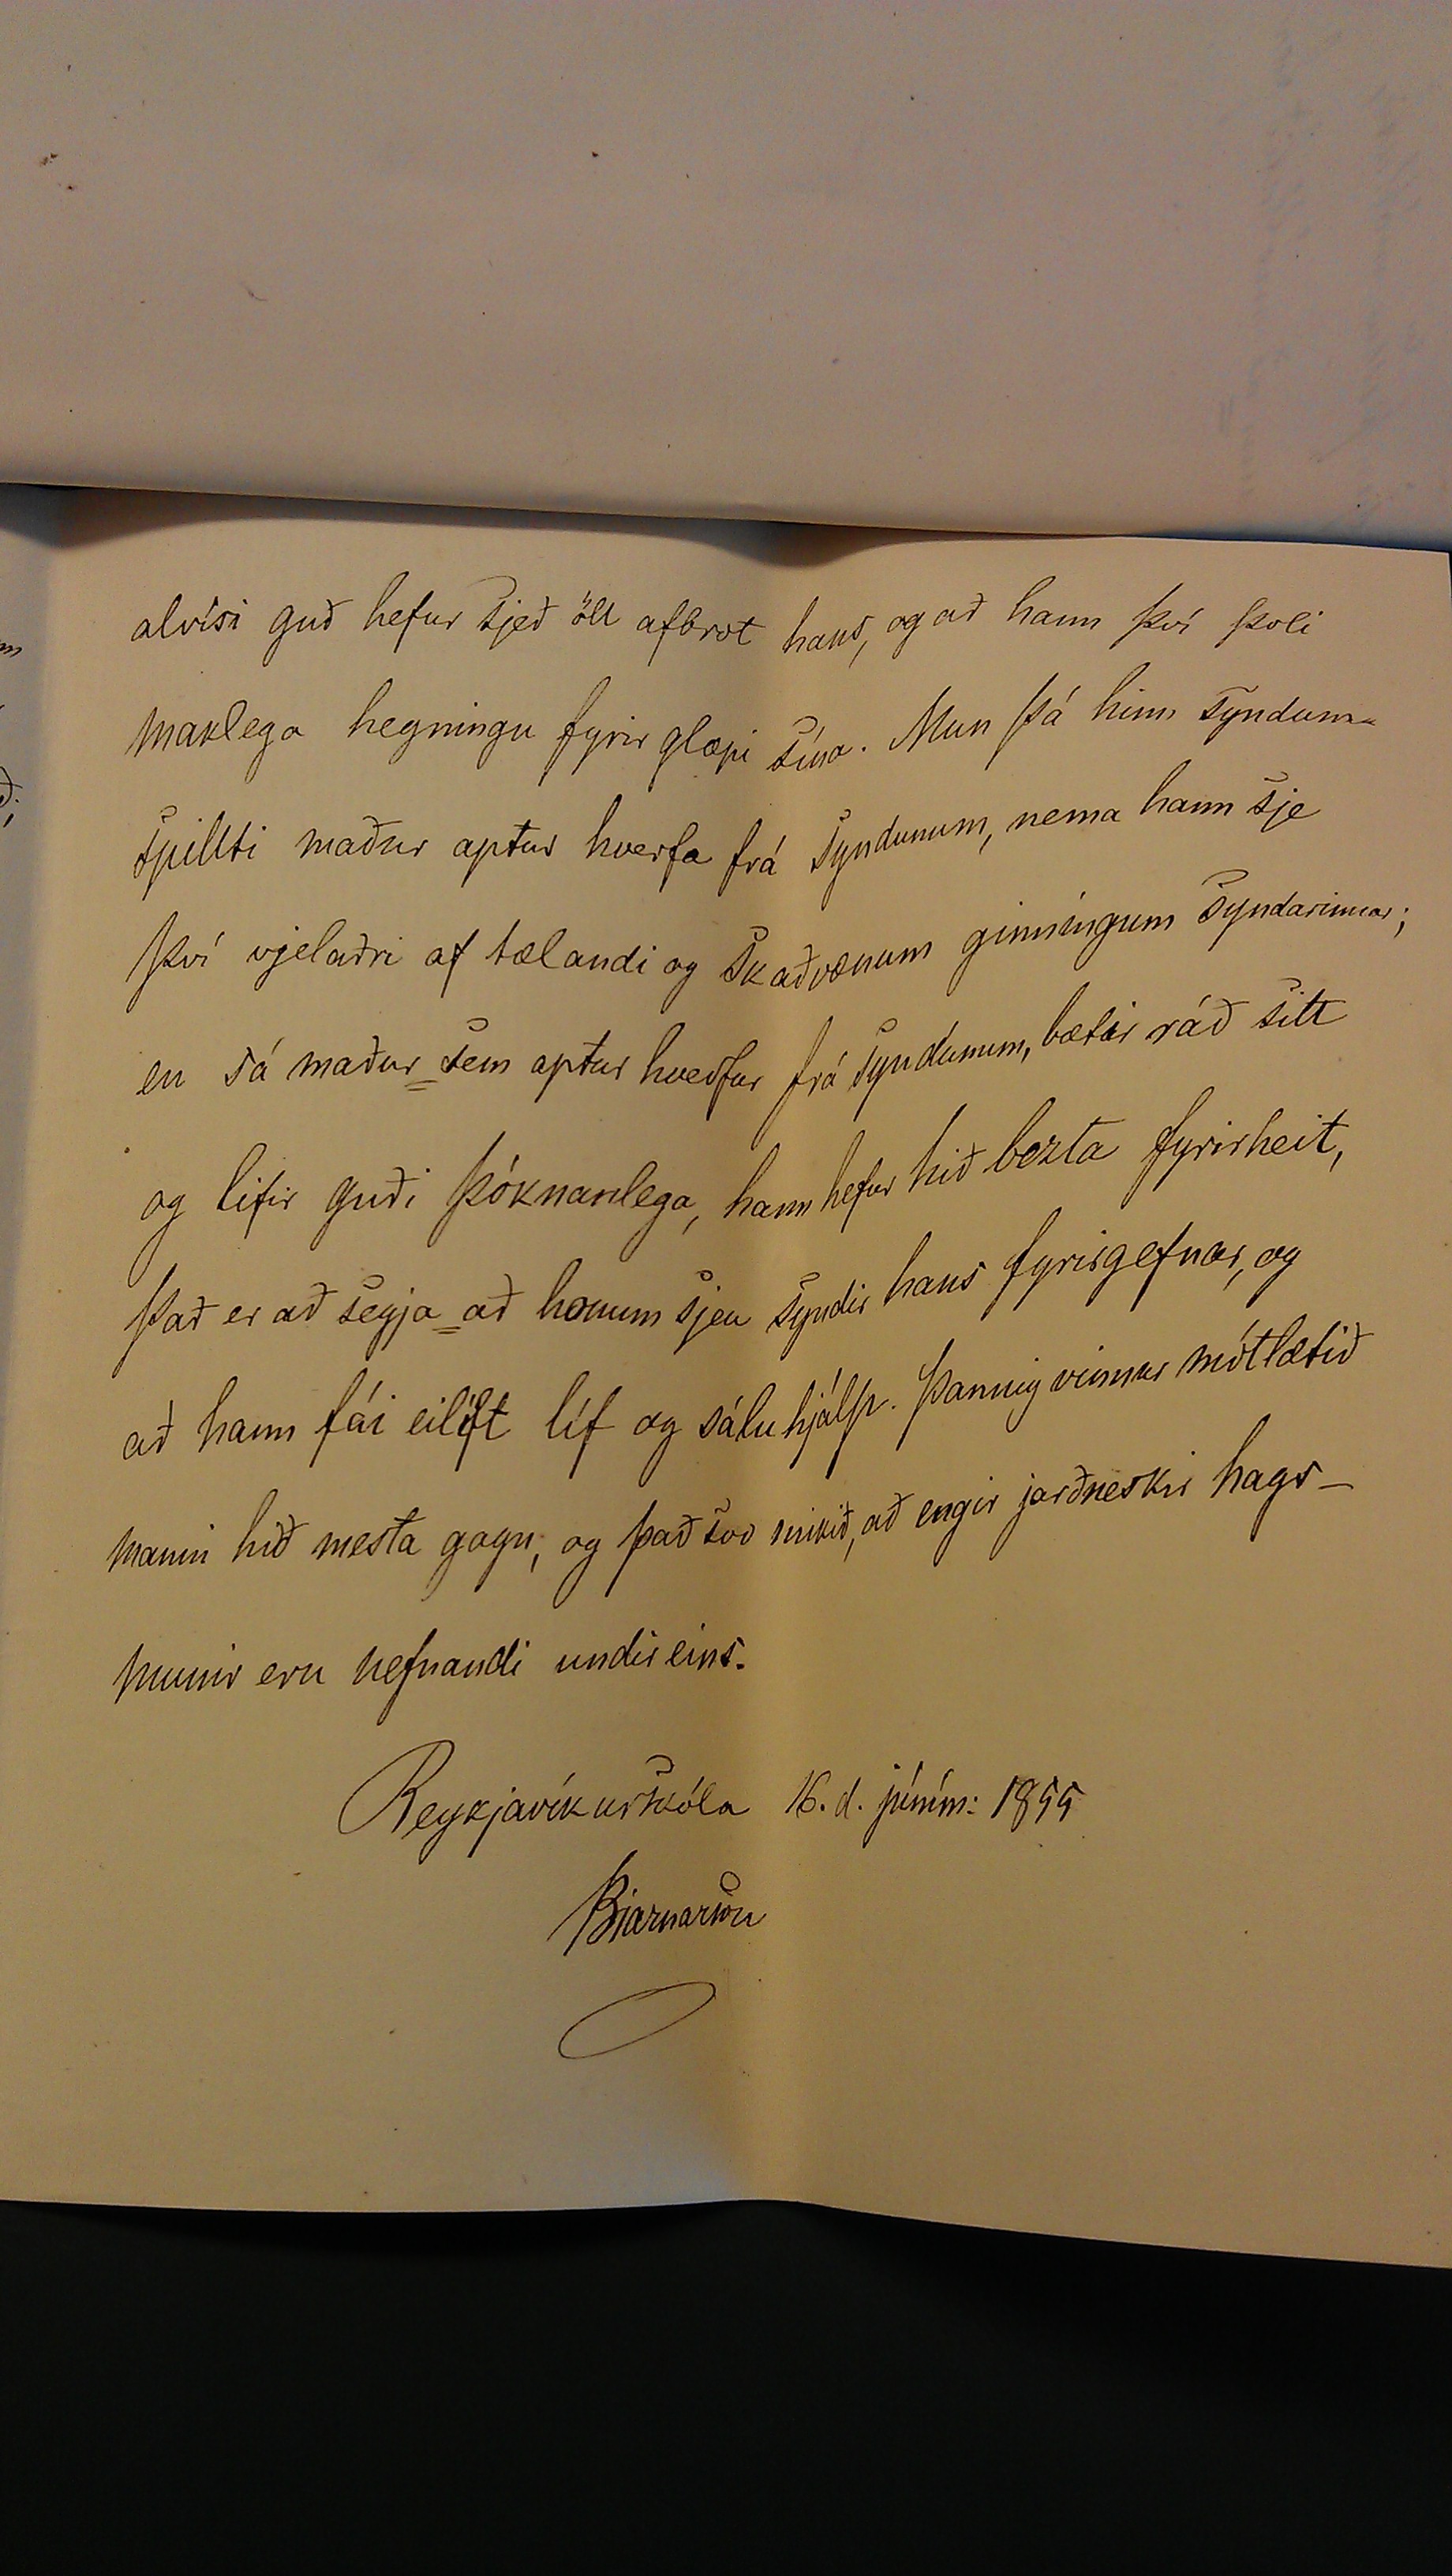 alvísi guð hefur sjeð öll afbrot hans, og að hann því þoli
maklega hegningu fyrir glæpi sína. Mun þá hinn syndum-
spillti maður aptur hverfa frá syndunum, nema hann sje
því vjelaðri af tælandi og skaðvænum ginníngum syndarinnar;
en sá maður sem aptur hverfur frá syndunum, bætir ráð sitt
og lifir guði þóknanlega, hann hefur hið bezta fyrirheit,
það er að segja að honum sjeu syndir hans fyrirgefnar, og
að hann fái eilíft líf og sáluhjálp. Þannig vinnur mótlætið
manni hið mesta gagn, og það svo mikið, að engir jarðneskir hags-
munir eru nefnandi undireins.
Reykjavíkurskóla 16. d. júním: 1855
Bjarnarson